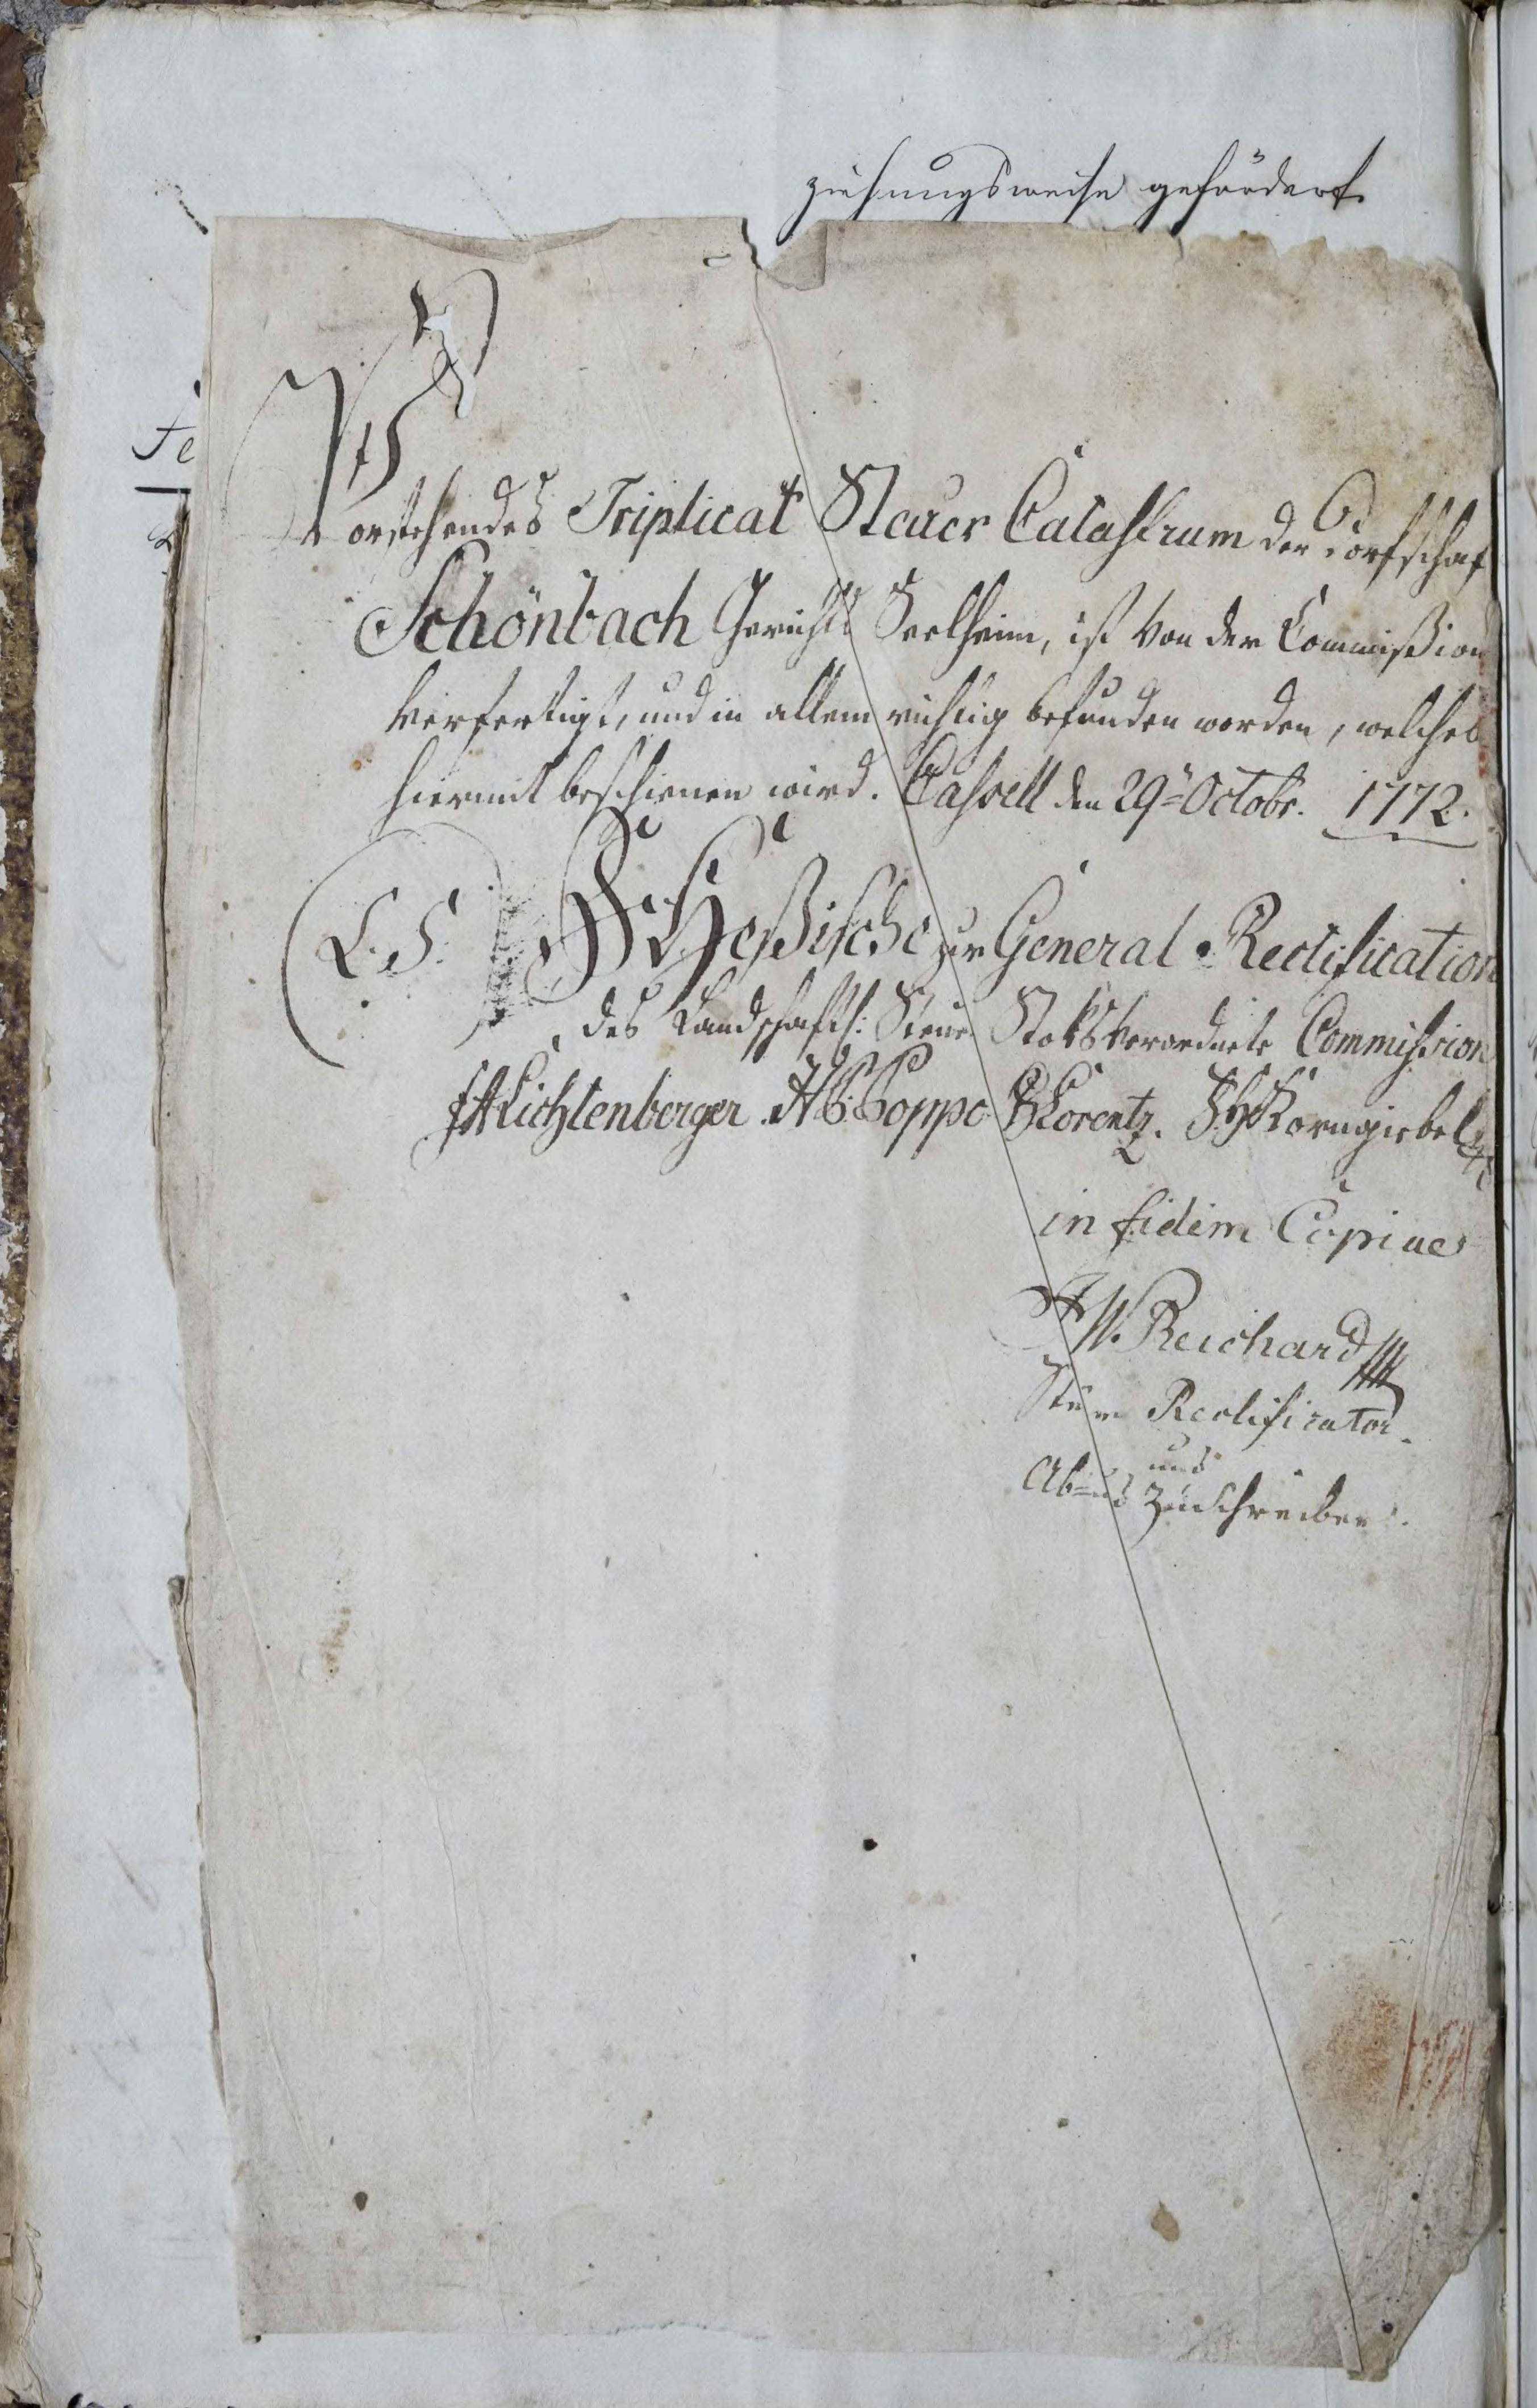 ziehungsweise gefördert
Fe
Vorstehendes Triplicat Steuer Catastrum der Dorfschaf
Schönbach Gerichts Seelheim, ist von der Commißion
verfertigt, und in allem richtig befunden worden, welches
hiermit beschienen wird. Cassell den 29t Octobr. 1772.
(L.S.) F. Heßische zur General-Rectification
des Landschaftl: Steuer Stoks verordnete Commission
Lichtenberger Poppe Lorentz. Korngiebel
in fidem Copiae
W. Reichard
Steuer Rectificator
und
Ab= und Zuschreiber.